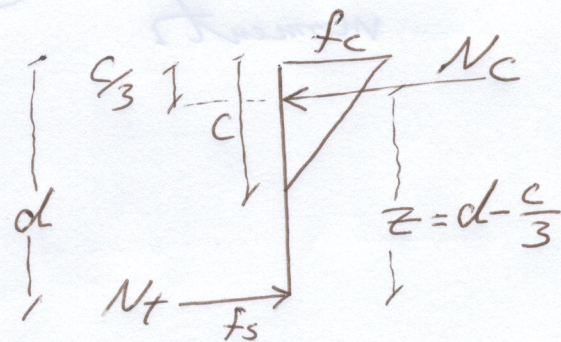 fc
Nc
c/3
C
d
z = d - c/3
Nt
fs